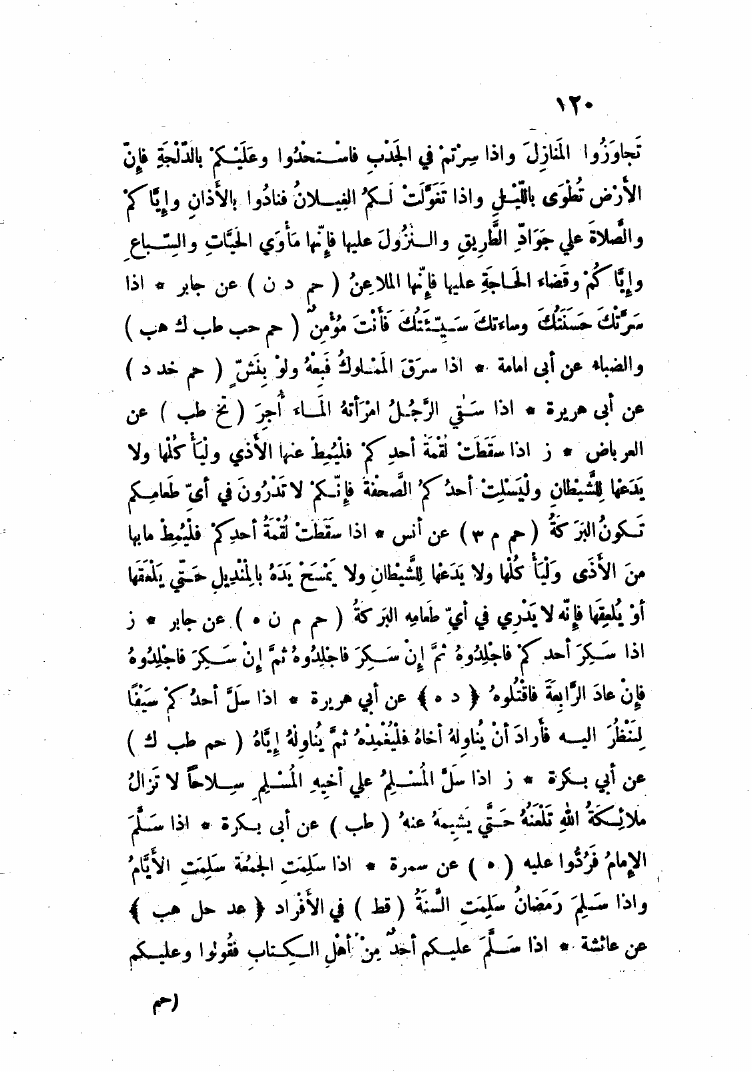 ١٢٠
تَجاوَزُوا المَنازِلَ واذا سِرْتمْ في الجَدْبِ فاسْتحْدُوا وعَلَيْكمْ بالدُّلْجَةِ فإنّ
الأَرْضَ تُطْوَى باللّيْلِ واذا تَغَوَّلَتْ لَكمُ الغِيلانُ فنادُوا بالأَذانِ وإيَّاكمْ
والصَّلاةَ علي جَوَادِّ الطَّرِيقِ والنزُولَ عليها فإنّها مَأْوَي الحَيَّاتِ والسِّباعِ
وإيَّاكُمْ وقَضاءِ الحَاجَةِ عليها فإنّها الملاعِنُ ( حم د ن ) عن جابر * اذا
سَرَّتْكَ حَسَنَتُكَ وساءتكَ سَيِّئَتُكَ فَأنْتَ مُؤْمِنٌ ( حم حب طب ك هب )
والضياء عن أبى امامة * اذا سرَقَ المَمْلوكُ فَبِعْهُ ولوْ بِنَشّ ( حم خد د )
عن أبى هريرة * اذا سَقَي الرَّجُلُ امْرَأتهُ المَاءَ أُجِرَ ( تخ طب ) عن
العرباض * ز اذا سقَطَتْ لُقْمَةُ أحدِكمْ فلْيُمِطْ عنها الأذي ولْيَأْكُلْها ولا
يَدَعْها لِلشَّيْطانِ ولْيَسْلِتْ أحدُكمُ الصَّحْفَةَ فإنّكمْ لا تَدْرُونَ في أيّ طَعامِكم
تَكونُ البَرَكَةُ ( حم م ٣ ) عن أنس * اذا سقَطَتْ لُقْمَةُ أحدِكمْ فلْيُمِطْ مابها
منَ الأَذَى ولْيَأْكُلْها ولا يَدَعْها لِلشَّيْطانِ ولا يَمْسَحْ يَدَهُ بالمِنْدِيلِ حَتّي يَلْعَقَها
أوْ يُلْعِقَها فإنّه لا يَدْرِي في أيّ طَعامِهِ البَرَكَةُ ( حم م ن ه ) عن جابر * ز
اذا سَكِرَ أحدكمْ فاجْلِدُوهُ ثمَّ إنْ سَكِرَ فاجْلِدُوهُ ثمَّ إنْ سَكِرَ فاجْلِدُوهُ
فإنْ عادَ الرَّابِعَةَ فاقْتُلوهُ ( د ه ) عن أبي هريرة * اذا سَلَّ أحدُكمْ سَيْفًا
لِيَنْظُرَ اليهِ فَأَرادَ أنْ يُناوِلهُ أخاهُ فلْيُغْمِدْهُ ثمَّ يُناوِلْهُ إيَّاهُ ( حم طب ك )
عن أبي بكرة * ز اذا سَلَّ المُسْلِمُ علي أخيهِ المُسْلِمِ سِلاحًا لا تزالُ
ملائِكَةُ اللهِ تَلْعَنُهُ حَتَّي يَشِيمَهُ عنهُ ( طب ) عن أبى بكرة * اذا سَلَّمَ
الإمامُ فَرُدُّوا عليه ( ه ) عن سمرة * اذا سَلِمَتِ الجمُعَةُ سَلِمَتِ الأَيَّامُ
واذا سَلِمَ رَمَضانُ سَلِمَتِ السَّنَةُ ( قط ) في الأَفْراد ( عد حل هب )
عن عائشة * اذا سَلَّمَ عليكم أحدٌ مِنْ أهْلِ الكِتابِ فقُولوا وعليكم
( حم